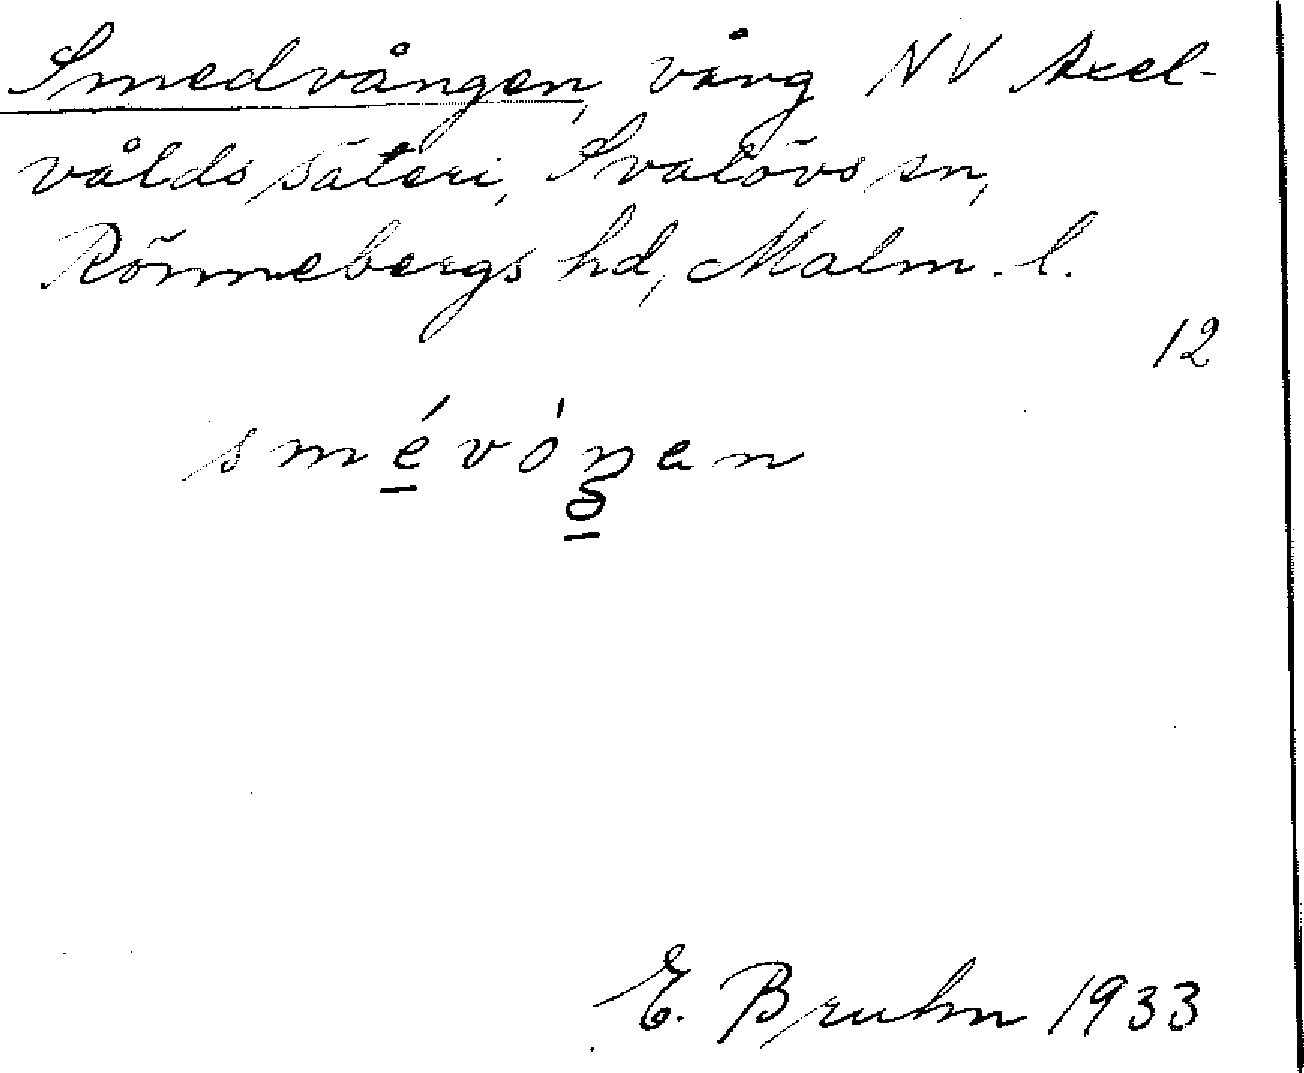 Smedvången, vång NV Axel-
vålds säteri, Svalövs sn,
Rönnebergs hd, Malm. l.
12
smévóŋen
E. Bruhn 1933